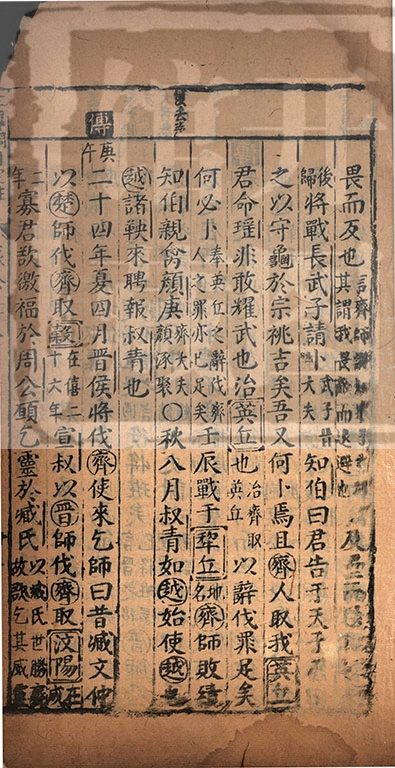 畏而反也其謂我畏齊而退避也及壘而
後歸將戰長武子請卜武子晉大夫知伯曰君告于天子
之以守龜於宗祧吉矣吾又何卜焉且齊人取我英丘
君命瑤非敢耀武也治英丘也治齊取英丘以辭伐罪足矣
何必卜奉英丘之辭伐齊人之罪亦已足矣壬辰戰于犁丘地名齊師敗績
知伯親禽顏庚齊大夫顏涿聚○秋八月叔青如越始使越也
越諸鞅來聘報叔青也
傳
庚午
二十四年夏四月晉侯將伐齊使來乞師曰昔臧文仲
以楚師伐齊取穀在僖二十六年宣叔以晉師伐齊取汶陽在成
二年寡君欲徼福於周公願乞靈於臧氏以臧氏世勝齊故欲乞其威靈